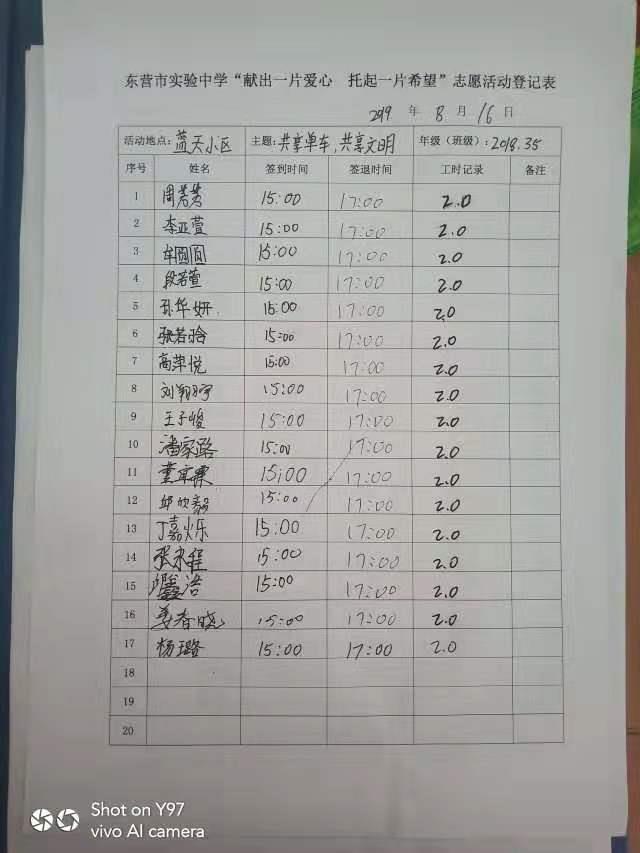 东营市实验中学“献出一片爱心 托起一片希望”志愿活动登记表
2019 年 8 月 16 日
活动地点：蓝天小区 主题：共享单车，共享文明 年级（班级）：2018.35
序号 姓名 签到时间 签退时间 工时记录 备注
1 周芳芳 15:00 17:00 2.0
2 李亚萱 15:00 17:00 2.0
3 牟圆圆 15:00 17:00 2.0
4 段若萱 15:00 17:00 2.0
5 孙华妍 15:00 17:00 2.0
6 张若晗 15:00 17:00 2.0
7 高萍悦 15:00 17:00 2.0
8 刘翔宇 15:00 17:00 2.0
9 王子峻 15:00 17:00 2.0
10 潘家路 15:00 17:00 2.0
11 15:00 17:00 2.0
12 邱欣毅 15:00 17:00 2.0
13 丁嘉烁 15:00 17:00 2.0
14 张永程 15:00 17:00 2.0
15 15:00 17:00 2.0
16 姜春晓 15:00 17:00 2.0
17 杨璐 15:00 17:00 2.0
18
19
20
Shot on Y97
vivo AI camera